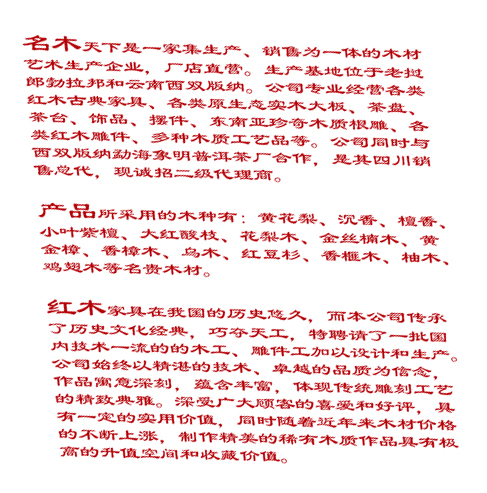 名木天下是一家集生产、销售为一体的木材
艺术生产企业，厂店直营。生产基地位于老挝
郎勃拉邦和云南西双版纳。公司专业经营各类
红木古典家具、各类原生态实木大板、茶盘、
茶台、饰品、摆件、东南亚珍奇木质根雕、各
类红木雕件、多种木质工艺品等。公司同时与
西双版纳勐海象明普洱茶厂合作，是其四川销
售总代，现诚招二级代理商。
产品所采用的木种有：黄花梨、沉香、檀香、
小叶紫檀、大红酸枝、花梨木、金丝楠木、黄
金樟、香樟木、乌木、红豆杉、香榧木、柚木、
鸡翅木等名贵木材。
红木家具在我国的历史悠久，而本公司传承
了历史文化经典，巧夺天工，特聘请了一批国
内技术一流的的木工、雕件工加以设计和生产。
公司始终以精湛的技术、卓越的品质为信念，
作品寓意深刻，蕴含丰富，体现传统雕刻工艺
的精致典雅。深受广大顾客的喜爱和好评，具
有一定的实用价值，同时随着近年来木材价格
的不断上涨，制作精美的稀有木质作品具有极
高的升值空间和收藏价值。